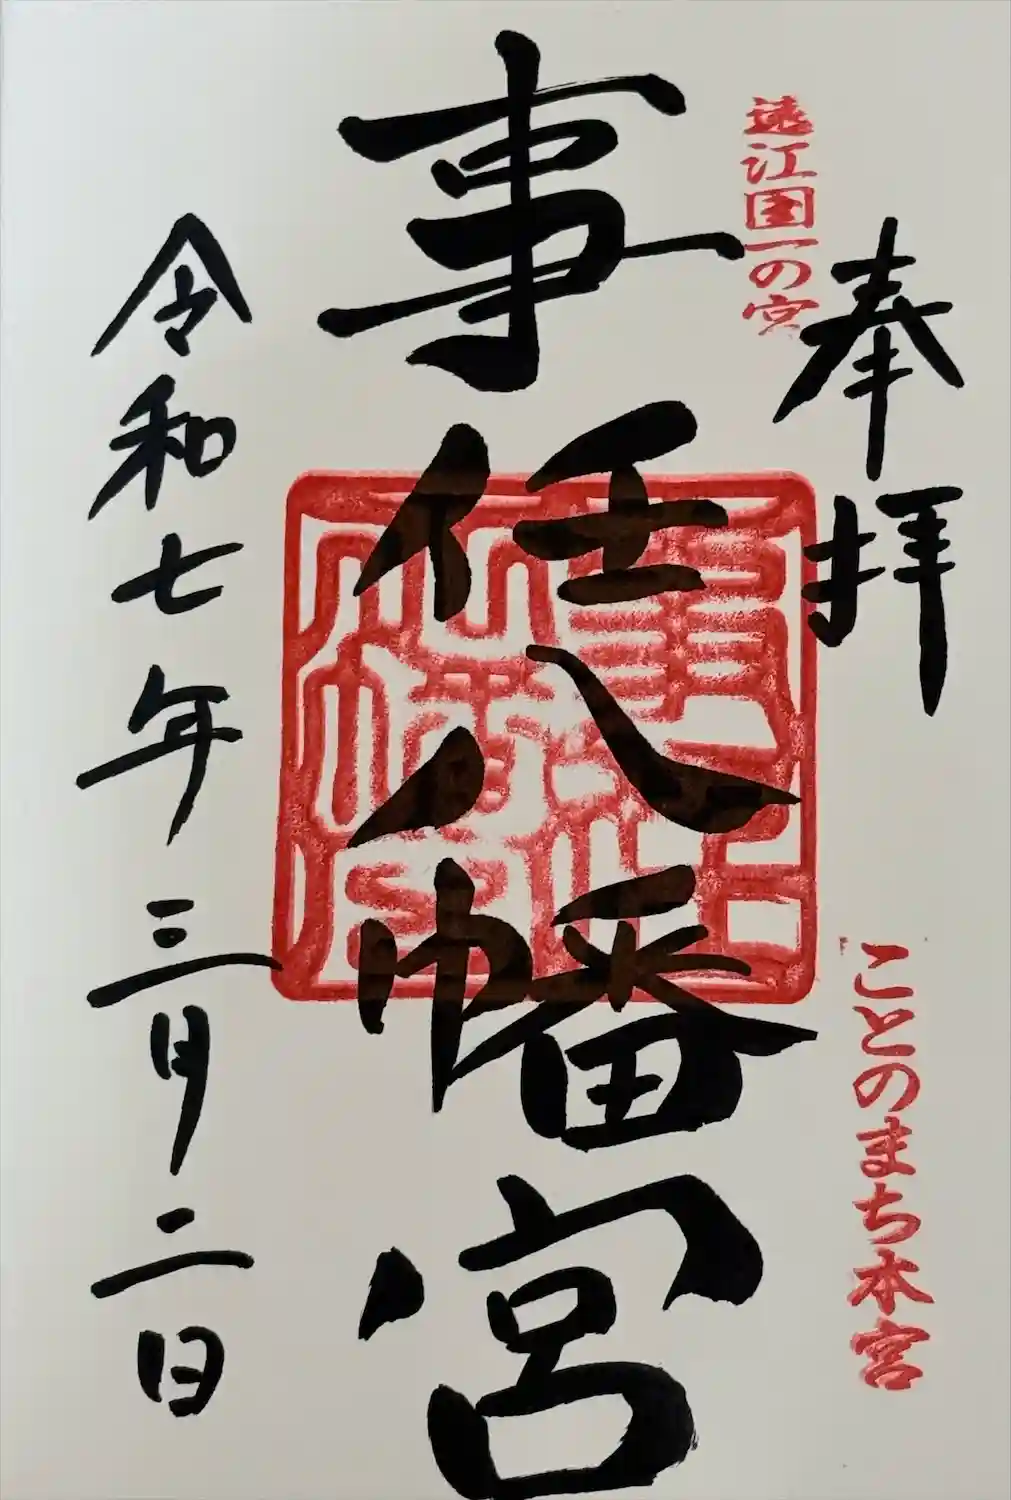 奉拝
遠江国一の宮
ことのまち本宮
事任八幡宮
令和七年三月二日